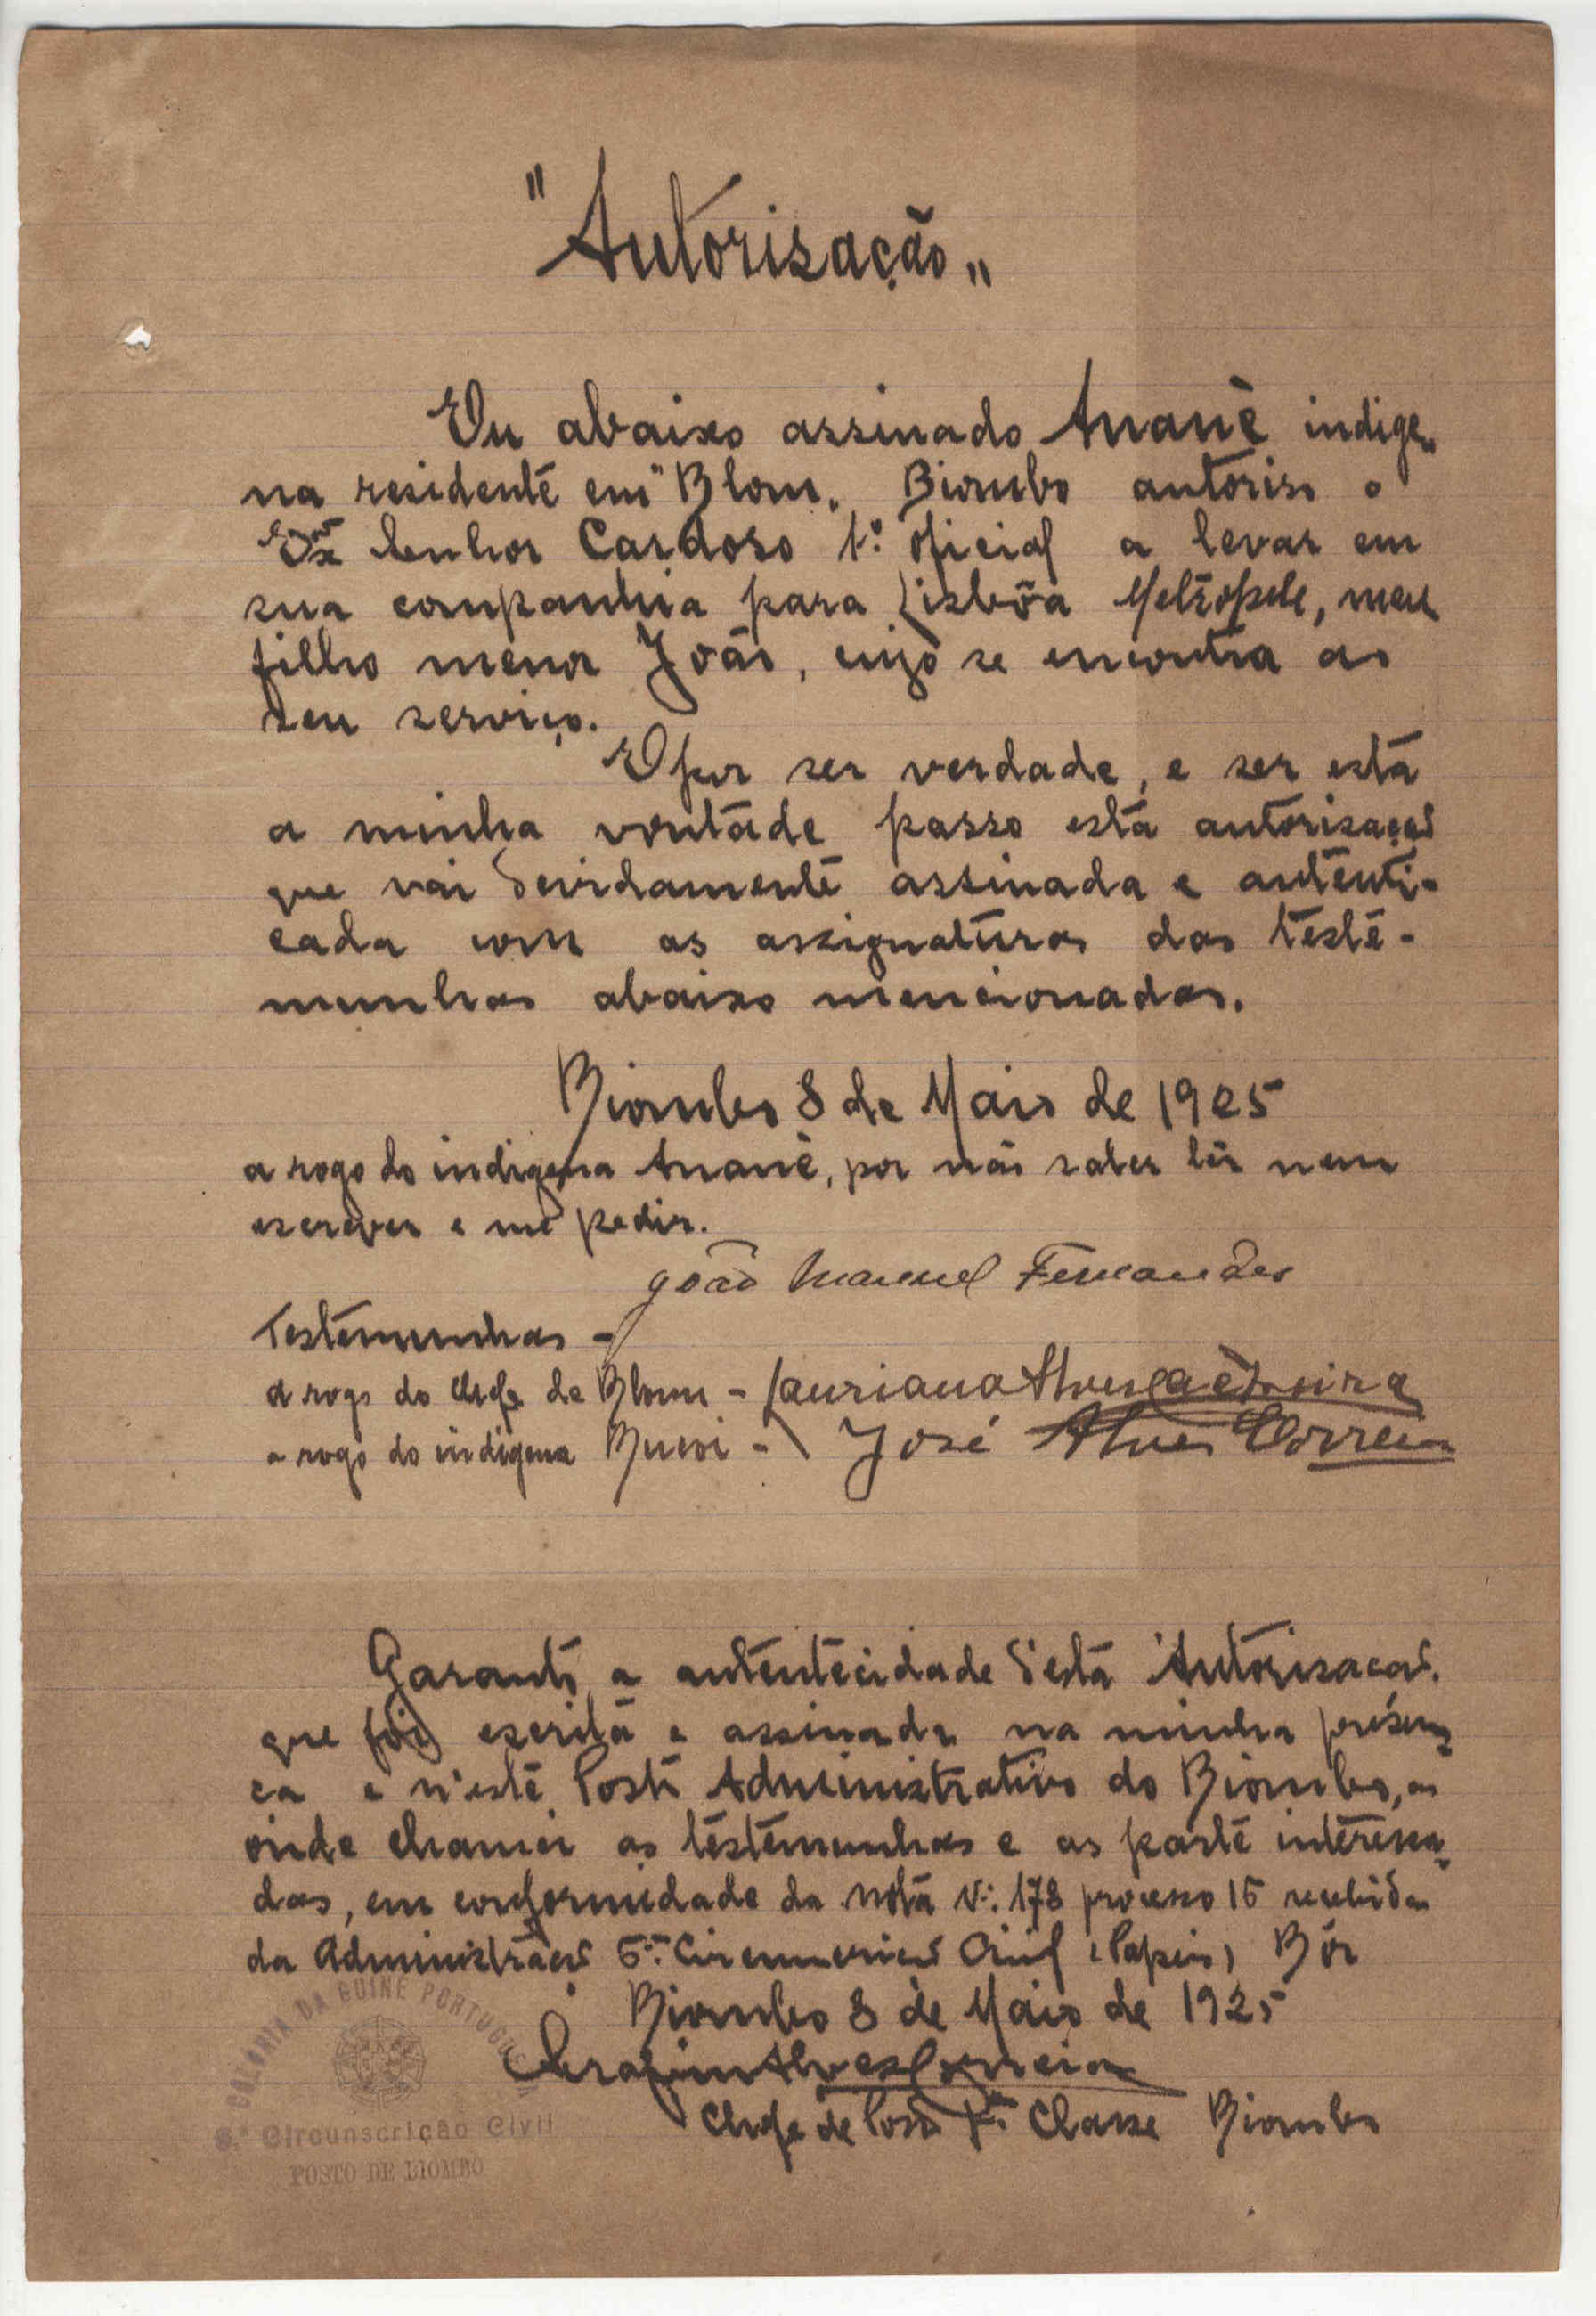 "Autorisação"
Eu abaixo assinado Ananè indige-
na residente em "Blom. Biombo autoriso o
Exmº Senhor Cardoso 1º. oficial a levar em
sua companhia para Lisbôa Metropole, meu
filho menor João, cujo se encontra ao
seu serviço.
E por ser verdade, e ser esta
a minha vontade passo esta autorisação
que vai devidamente assinada e autenti-
cada com as assignaturas das teste-
munhas abaixo mencionadas.
Biombo 8 de Maio de 1925
a rogo do indigena Ananè, por não saber lêr nem
escrever e me pedir.
João Manuel Fernandes
Testemunhas -
a rogo do Chefe de Blom -
a rogo do indigena - José Alves Correia
Garanto a autentecidade d'esta Autorisacão.
que foi escrita e assinada na minha presen-
ca e n'este Posto Administrativo do Biombo, a
onde chamei as testemunhas e as parte interessa-
das, em conformidade da nota Nº. 178 processo 15 recebida
da Administração 5ª. Circunscrição Civil (Papeis) Bôr
Biombo 8 de Maio de 1925
Serafim Alves Correia
Chefe de Posto 1ª. Classe Biombo
COLONIA DA GUINÉ PORTUGUESA
5.ª Circunscrição Civil
POSTO DE BIOMBO